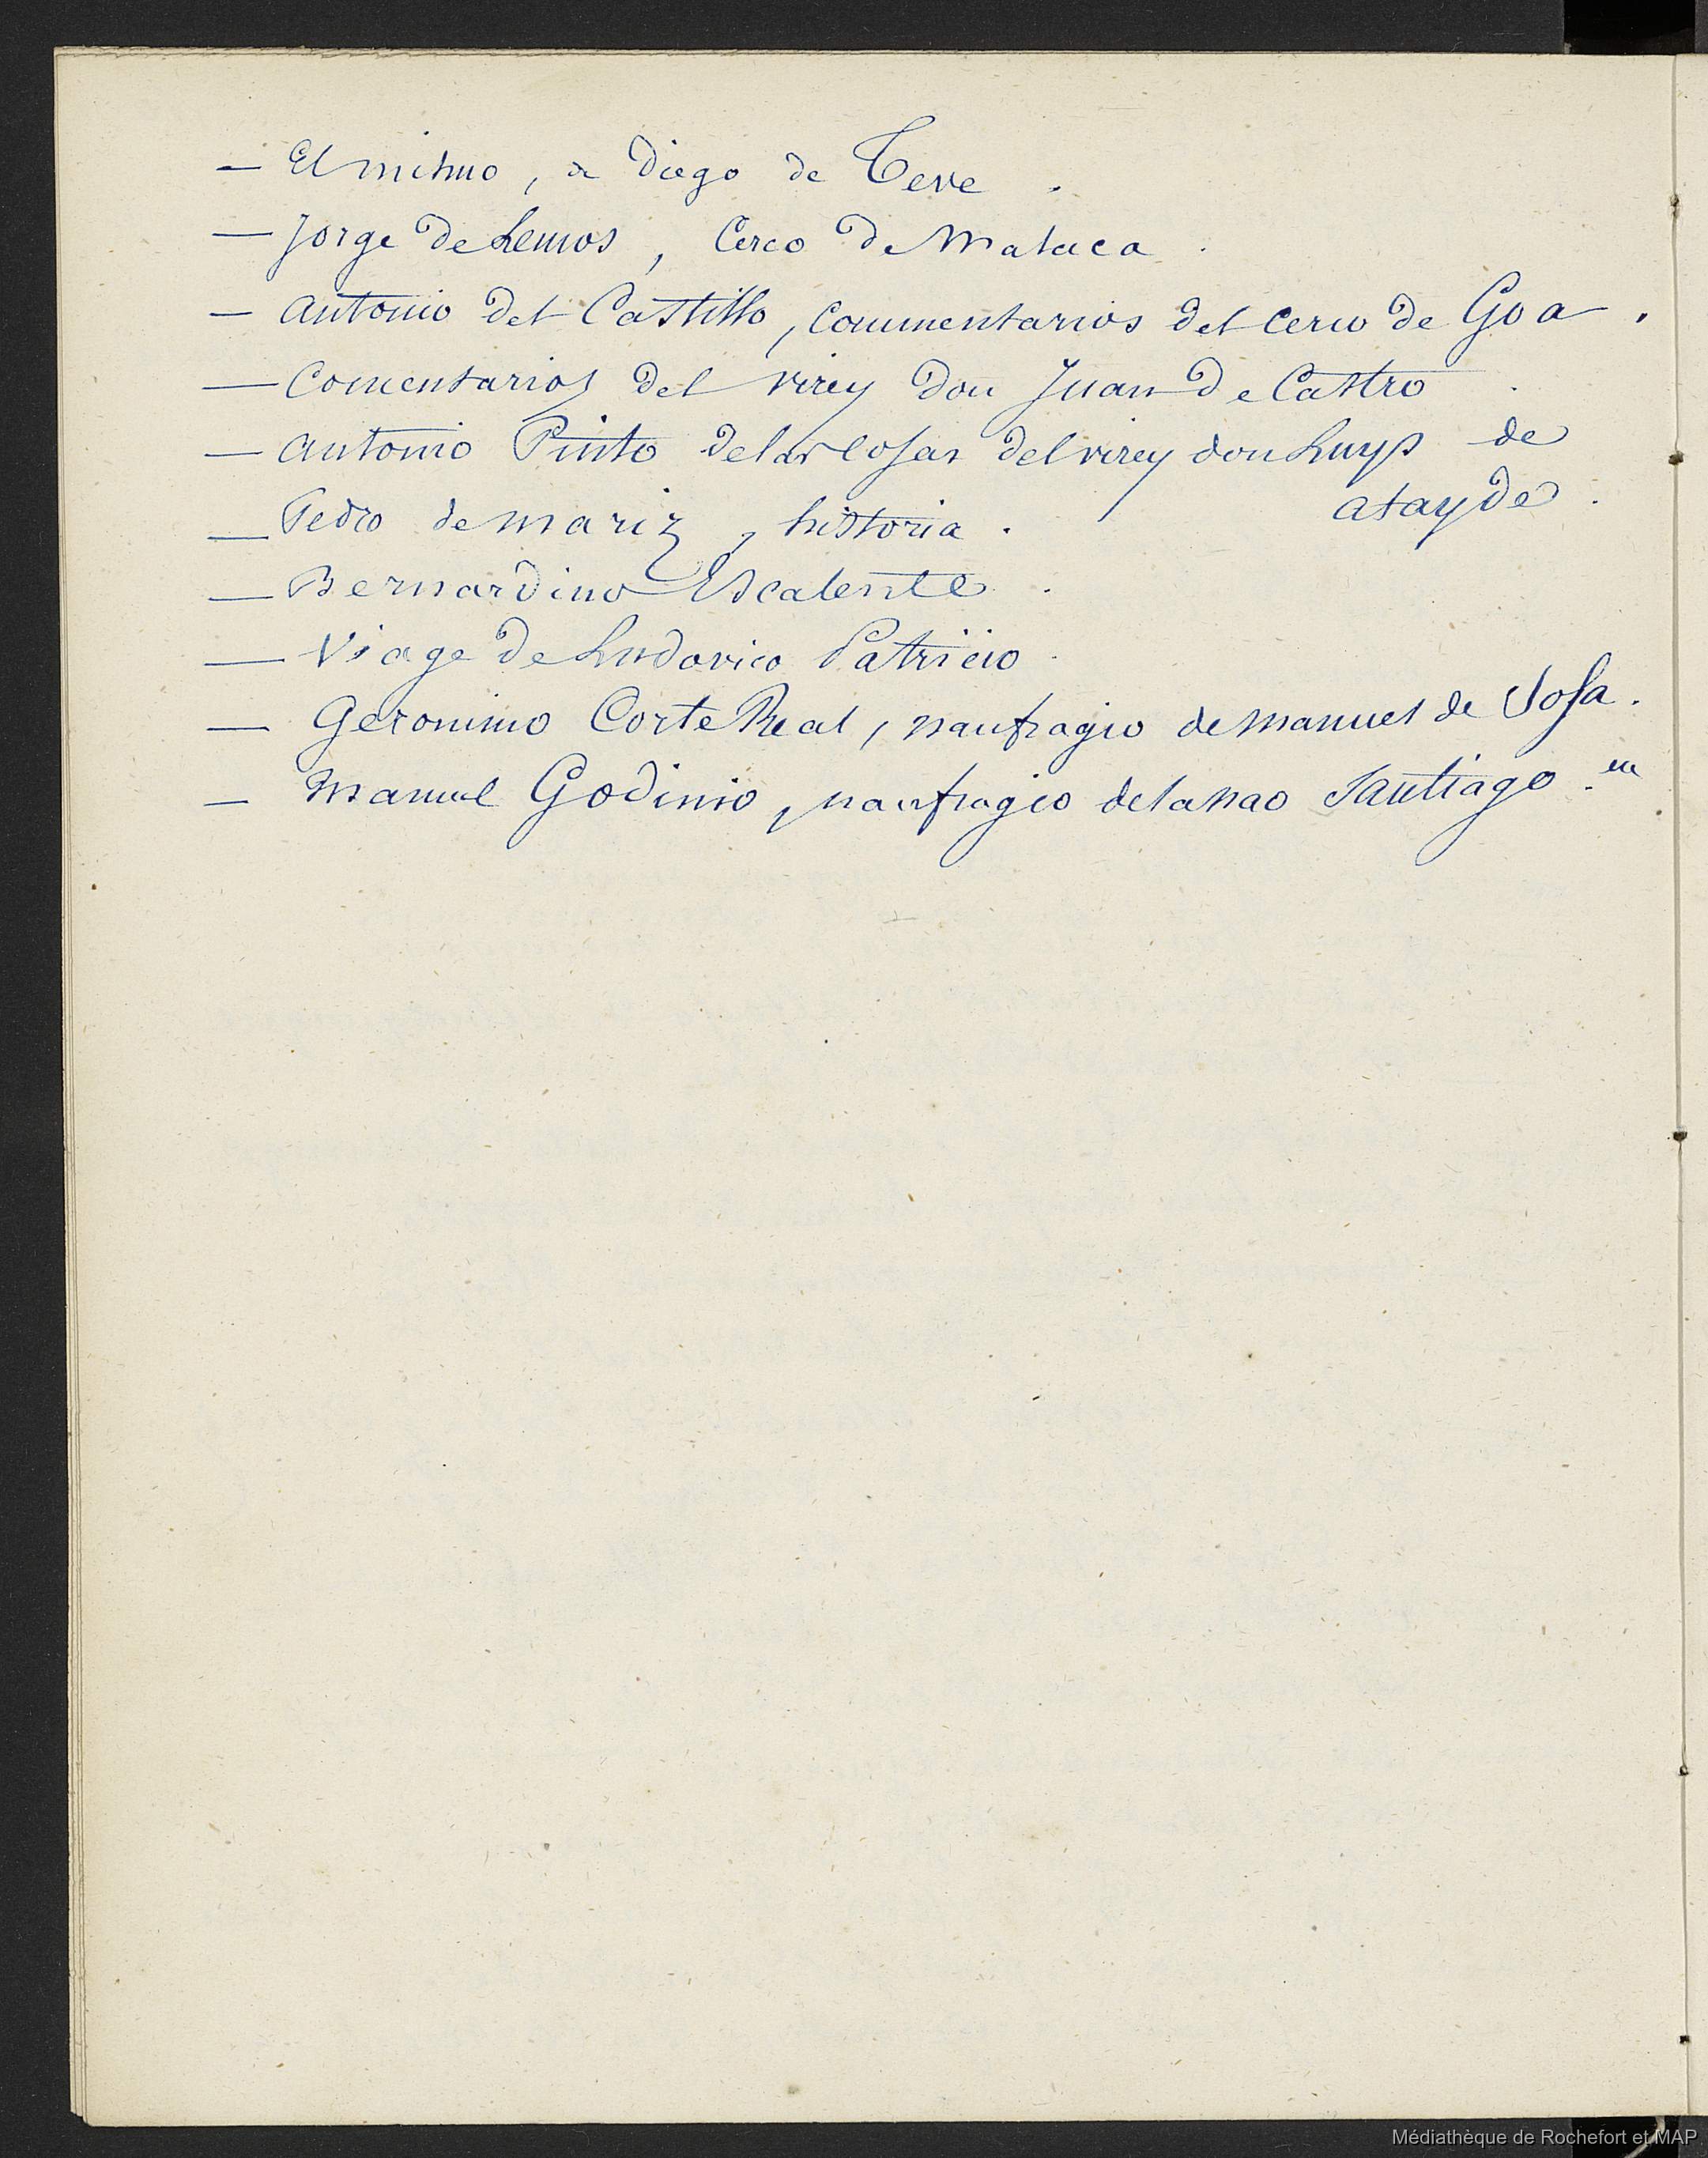 — El mismo, a Diego de Teve.
— Jorge de Lemos, Cerco de Malaca.
— Antonio del Castillo, Commentarios del cerco de Goa.
— Comentarios del virey don Juan de Castro.
— Antonio Pinto de las cosas del virey don Luys de
Atayde.
— Pedro de Mariz, historia.
— Bernardino Escalente.
— Viage de Ludovico Patricio.
— Geronimo Corte Real, naufragio de Manuel de Sosa.
— Manuel Godinio, naufragio de la nao Santiago.
Médiathèque de Rochefort et MAP